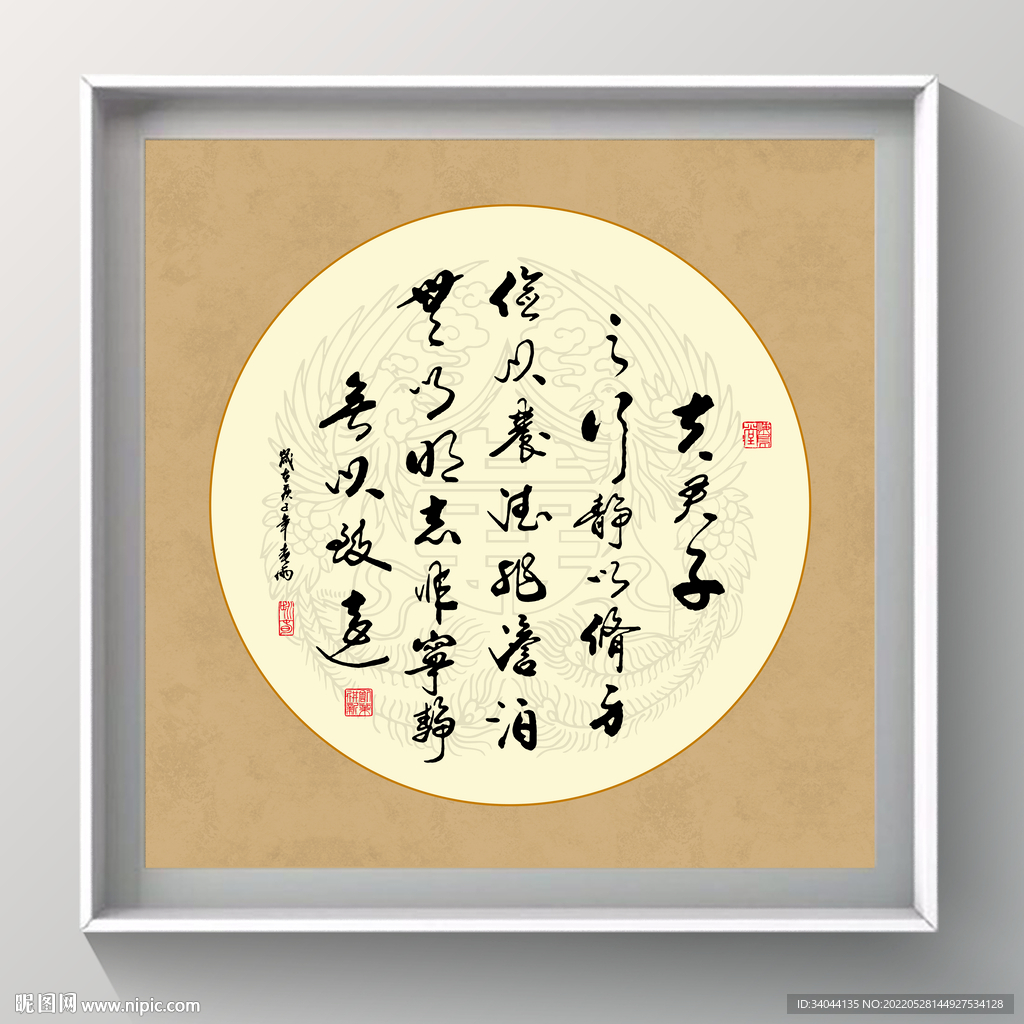 夫君子
之行靜以脩身
儉以養德非澹泊
無以明志非寧靜
無以致遠
昵图网 www.nipic.com
ID:34044135 NO:20220528144927534128